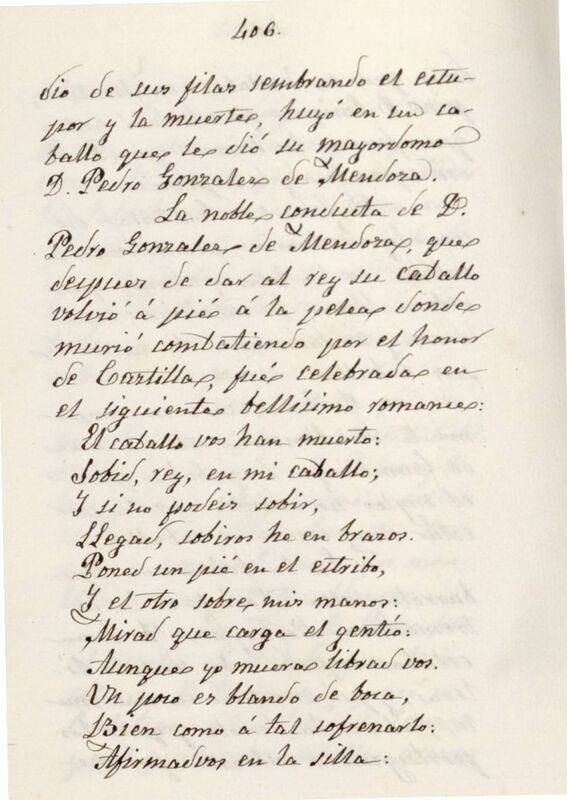 406.
dio de sus filas sembrando el estu-
por y la muerte, huyó en un ca-
ballo que le dió su mayordomo
D. Pedro Gonzalez de Mendoza.
La noble conducta de D.
Pedro Gonzalez de Mendoza, que
despues de dar al rey su caballo
volvió á pié á la pelea donde
murió combatiendo por el honor
de Castilla, fué celebrada en
el siguiente bellísimo romance:
El caballo vos han muerto:
Sobid, rey, en mi caballo;
Y si no podeis sobir,
LLegad, sobiros he en brazos.
Poned un pié en el estribo,
Y el otro sobre mis manos:
Mirad que carga el gentío:
Aunque yo muera, libradvos.
Un poco es blando de boca,
Bien como á tal sofrenarlo:
Afirmadvos en la silla: